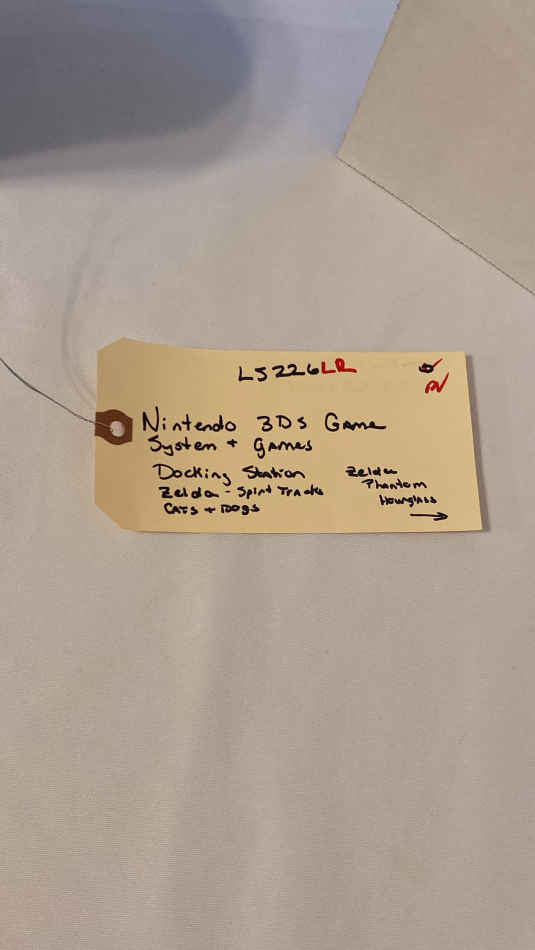 LS226LR
Nintendo 3DS Game
System + Games
Docking Station
Zelda - Spirit Tracks
CATS + DOgs
Zelda
Phantom
Hourglass